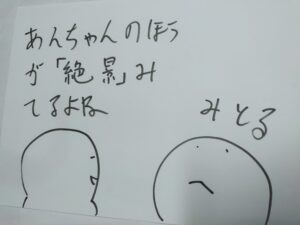 あんちゃんのほう
が「絶景」み
てるよな
みとる